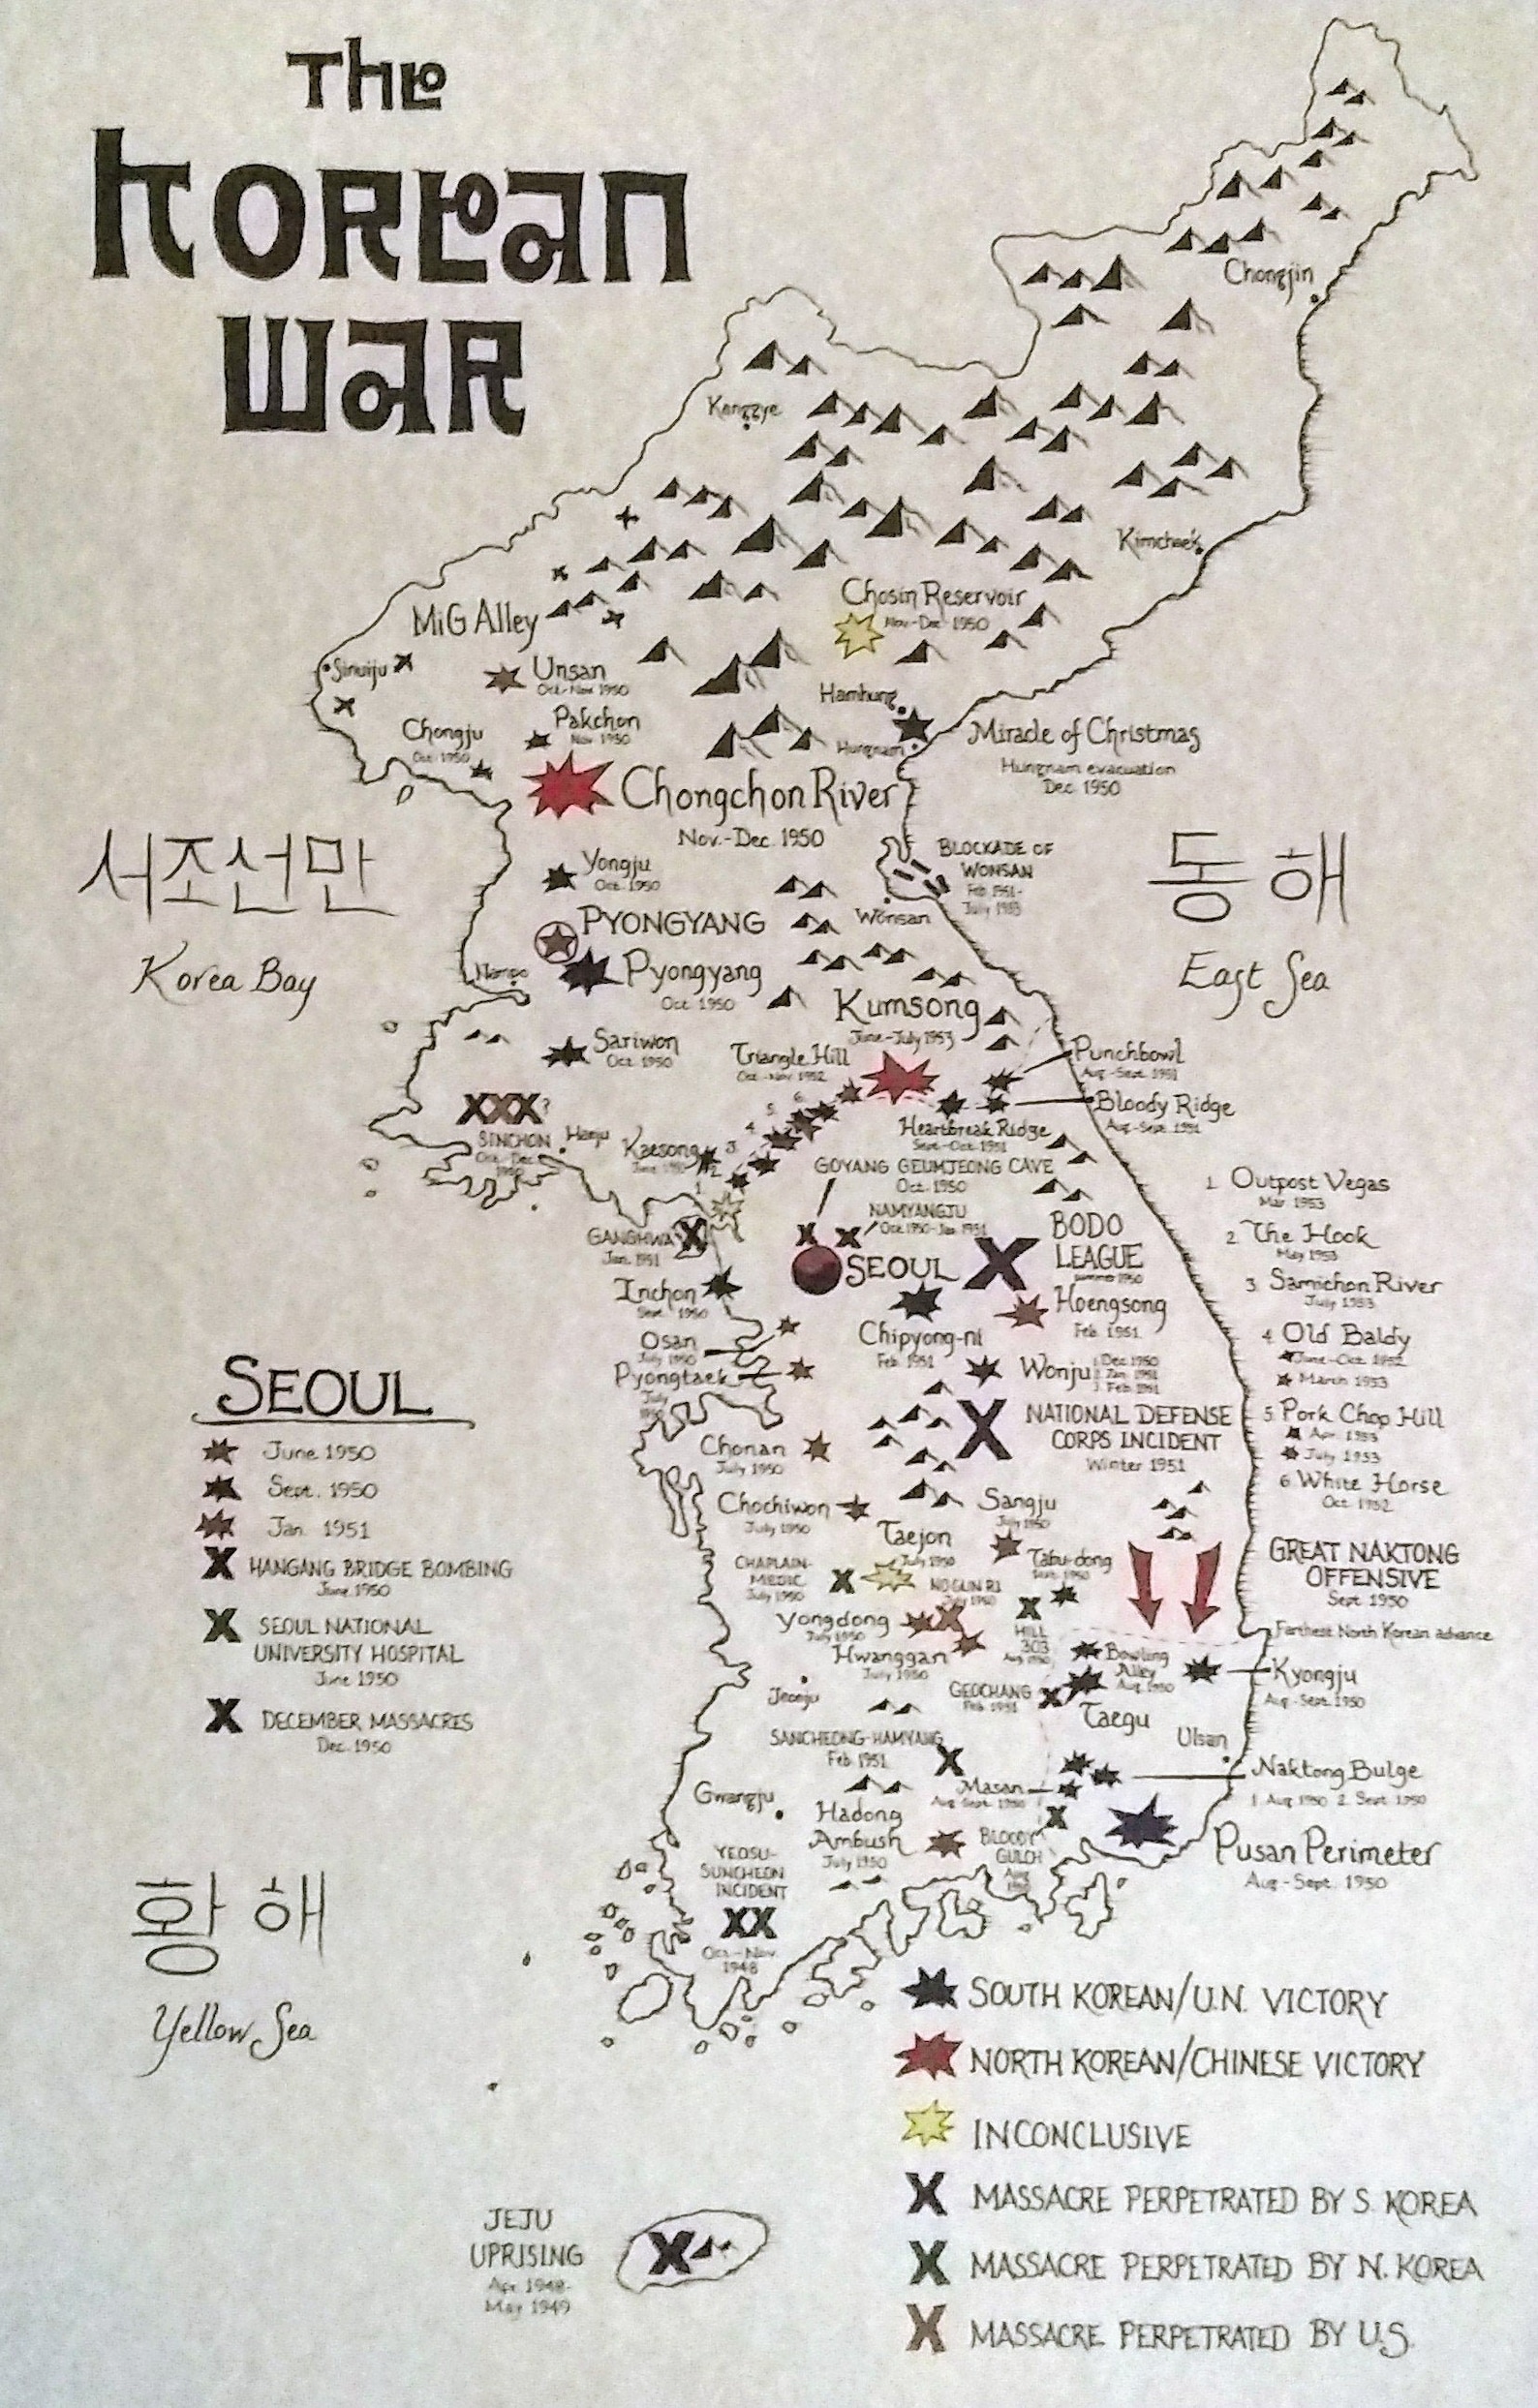 The
Korean
War
Chongjin
Kanggye
Kimchaek
Chosin Reservoir
Nov-Dec 1950
MiG Alley
Sinuiju
Unsan
Oct-Nov 1950
Hamhung
Chongju
Oct 1950
Pakchon
Nov 1950
Hungnam
Miracle of Christmas
Hungnam evacuation
Dec 1950
Chongchon River
Nov.-Dec. 1950
서조선만
Korea Bay
동해
East Sea
Yongju
Oct. 1950
BLOCKADE OF
WONSAN
Feb 1951-
July 1953
Wonsan
PYONGYANG
Pyongyang
Oct. 1950
Nampo
Kumsong
June-July 1953
Sariwon
Oct. 1950
Triangle Hill
Oct-Nov 1952
Punchbowl
Aug-Sept. 1951
Bloody Ridge
Aug-Sept. 1951
Heartbreak Ridge
Sept-Oct. 1951
XXX?
SINCHON
Oct-Dec
1950
Haeju
Kaesong
June 1950
1.
2.
3.
4.
5.
6.
GOYANG GEUMJEONG CAVE
Oct. 1950
NAMYANGJU
Oct. 1950-Jan. 1951
GANGHWA
Jan. 1951
SEOUL
BODO
LEAGUE
summer 1950
Inchon
Sept. 1950
Hoengsong
Feb. 1951
Chipyong-ni
Feb. 1951
Osan
July 1950
Pyongtaek
July
1950
Wonju
1. Dec. 1950
2. Jan. 1951
3. Feb. 1951
NATIONAL DEFENSE
CORPS INCIDENT
Winter 1951
1. Outpost Vegas
Mar 1953
2. The Hook
May 1953
3. Samichon River
July 1953
4. Old Baldy
June-Oct. 1952
March 1953
5. Pork Chop Hill
Apr. 1953
July 1953
6. White Horse
Oct. 1952
SEOUL
June 1950
Sept. 1950
Jan. 1951
HANGANG BRIDGE BOMBING
June 1950
SEOUL NATIONAL
UNIVERSITY HOSPITAL
June 1950
DECEMBER MASSACRES
Dec. 1950
Chonan
July 1950
Chochiwon
July 1950
Sangju
July 1950
Taejon
July 1950
CHAPLAIN-
MEDIC
July 1950
NOGUN RI
July 1950
Tabu-dong
Sept. 1950
HILL
303
Aug 1950
GREAT NAKTONG
OFFENSIVE
Sept. 1950
Farthest North Korean advance
Yongdong
July 1950
Hwanggan
July 1950
Bowling
Alley
Aug. 1950
Kyongju
Aug-Sept. 1950
Jeonju
GEOCHANG
Feb. 1951
Taegu
SANCHEONG-HAMYANG
Feb. 1951
Ulsan
Naktong Bulge
1. Aug 1950 2. Sept. 1950
Masan
Aug-Sept. 1950
Gwangju
Hadong
Ambush
July 1950
BLOODY
GULCH
Aug
1950
Pusan Perimeter
Aug-Sept. 1950
YEOSU-
SUNCHEON
INCIDENT
XX
Oct.-Nov.
1948
황해
Yellow Sea
SOUTH KOREAN/U.N. VICTORY
NORTH KOREAN/CHINESE VICTORY
INCONCLUSIVE
MASSACRE PERPETRATED BY S. KOREA
MASSACRE PERPETRATED BY N. KOREA
MASSACRE PERPETRATED BY U.S.
JEJU
UPRISING
Apr. 1948-
May 1949